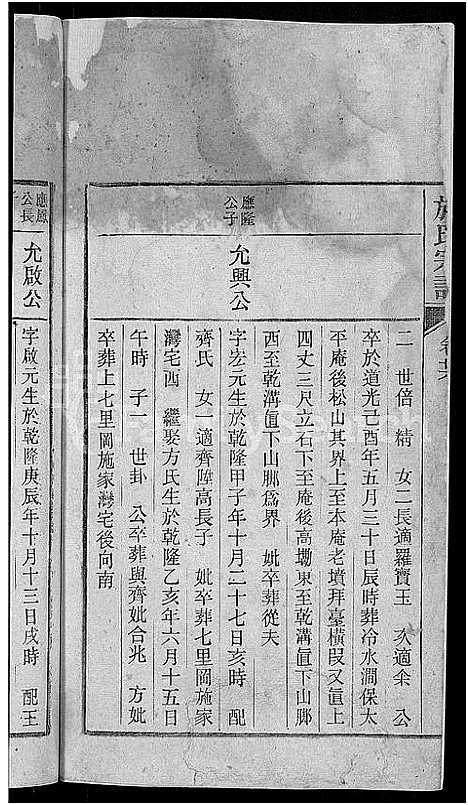 施氏宗譜
卷廿六
二　世倍　精　女二長適羅寶玉　次適余　公
卒於道光己酉年五月三十日辰時葬冷水澗保太
平庵後松山其界上至本庵老墳拜臺橫叚又直上
四丈三尺立石下至庵後高墈東至乾溝直下山脚
西至乾溝直下山脚爲界　妣卒葬從夫
應隆
公子
允興公
字宏元生於乾隆甲子年十月二十七日亥時　配
齊氏　女一適齊 高長子　妣卒葬七里岡施家
灣宅西　繼娶方氏生於乾隆乙亥年六月十五日
午時　子一　世卦　公卒葬與齊妣合兆　方妣
卒葬上七里岡施家灣宅後向南
應鳳
公長
子
允啟公
字啟元生於乾隆庚辰年十月十三日戌時　配王